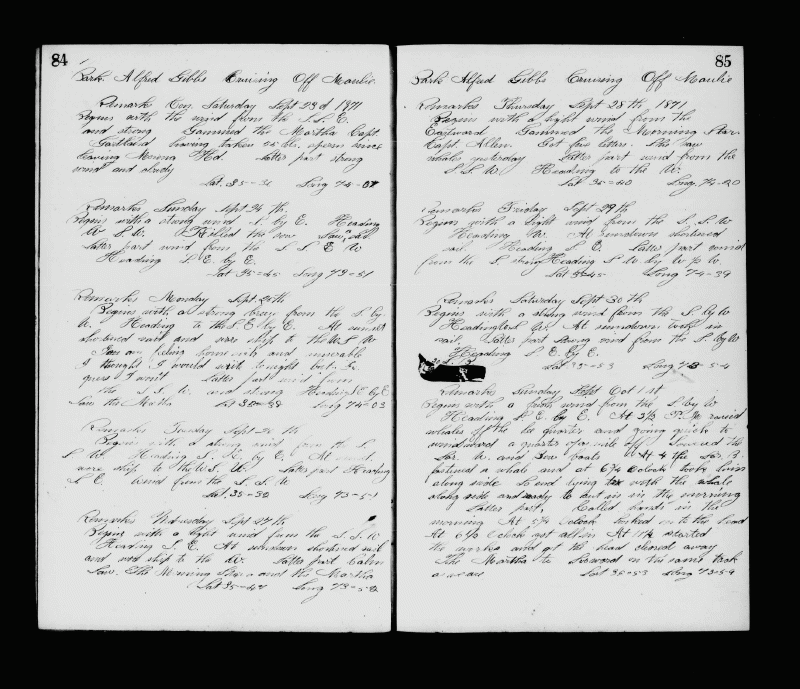 84
Bark Alfred Gibbs Cruising Off Maulie
Remarks Con. Saturday Sept 23d 1871
Begins with the wind from the S.S.E.
and strong Gammed the Martha Capt.
having taken 45 bbls. sperm since
leaving Hd. Latter part strong
wind and
Lat. 35-31 Long 74-07
Remarks Sunday Sept 24 th
Begins with a strong wind S. by E. Heading
W.S.W. Killed the sow Saw sail
Latter part wind from the S S E W
Heading S E. by E.
Lat 35-45 Long 73-51
Remarks Monday Sept 25th
Begins with a strong breeze from the S. by.
W. Heading to the S.E by E. At sunset
shortened sail and wore ship to the W.S.W
I am feeling homesick and miserable
I thought I would write to night but I
guess I wont Latter part wind from
the S.S.W. and strong Heading S.E by E
Saw the Martha Lat 35-38 Long 74-03
Remarks Tuesday Sept 26 th
Begins with a strong wind from the S.
S.W. Heading S. E. by E. At sunset
wore ship to the W.S.W. Latter part Heading
S E. Wind from the S.S.W
Lat. 35-39 Long 73-51
Remarks Wednesday Sept 27th
Begins with a light wind from the S.S.W.
Heading S.E. At sundown shortened sail
and wore ship to the W. Latter part calm
Saw The Morning Star and the Martha
Lat 35-44 Long 73-52
85
Bark Alfred Gibbs Cruising Off Maulie
Remarks Thursday Sept 28th 1871
Begins with a light wind from the
Eastward Gammed the Morning Star.
Capt. Allen. Got few letters. She saw
whales yesterday Latter part wind from the
S.S.W. Heading to the W.
Lat 35-40 Long. 74-20
Remarks Friday Sept 29th
Begins with a light wind from the S.S.W
Heading W. At sundown shortened
sail. Heading S E. Latter part wind
from the S. strong Heading S W by W
Lat 35-45 Long 74-39
Remarks Saturday Sept 30th
Begins with a strong wind from the S. by W
Heading At sundown took in
sail. Latter part strong wind from the S. by W
Heading S E. by E.
Lat 35-53 Long 73-54
Remarks Sunday Oct 1st
Begins with a fresh wind from the S by W
Heading S.E by E. At 3½ P.M. raised
whales off the lee quarter and going quick to
windward a quarter of a mile off Lowered the
Lar. W. and Bow boats At 4 the Lar. B.
fastened a whale and at 6¼ O clock took him
along side So end lying to with the whale
along side and ready to cut in in the morning
Latter part, Called hands in the
morning At 5¼ O clock hooked in to the head
At 6½ O clock got all in At 11½ started
the works and got the head cleared away
The Martha to leeward on the same tack
as we are Lat 35-53 Long 73-59